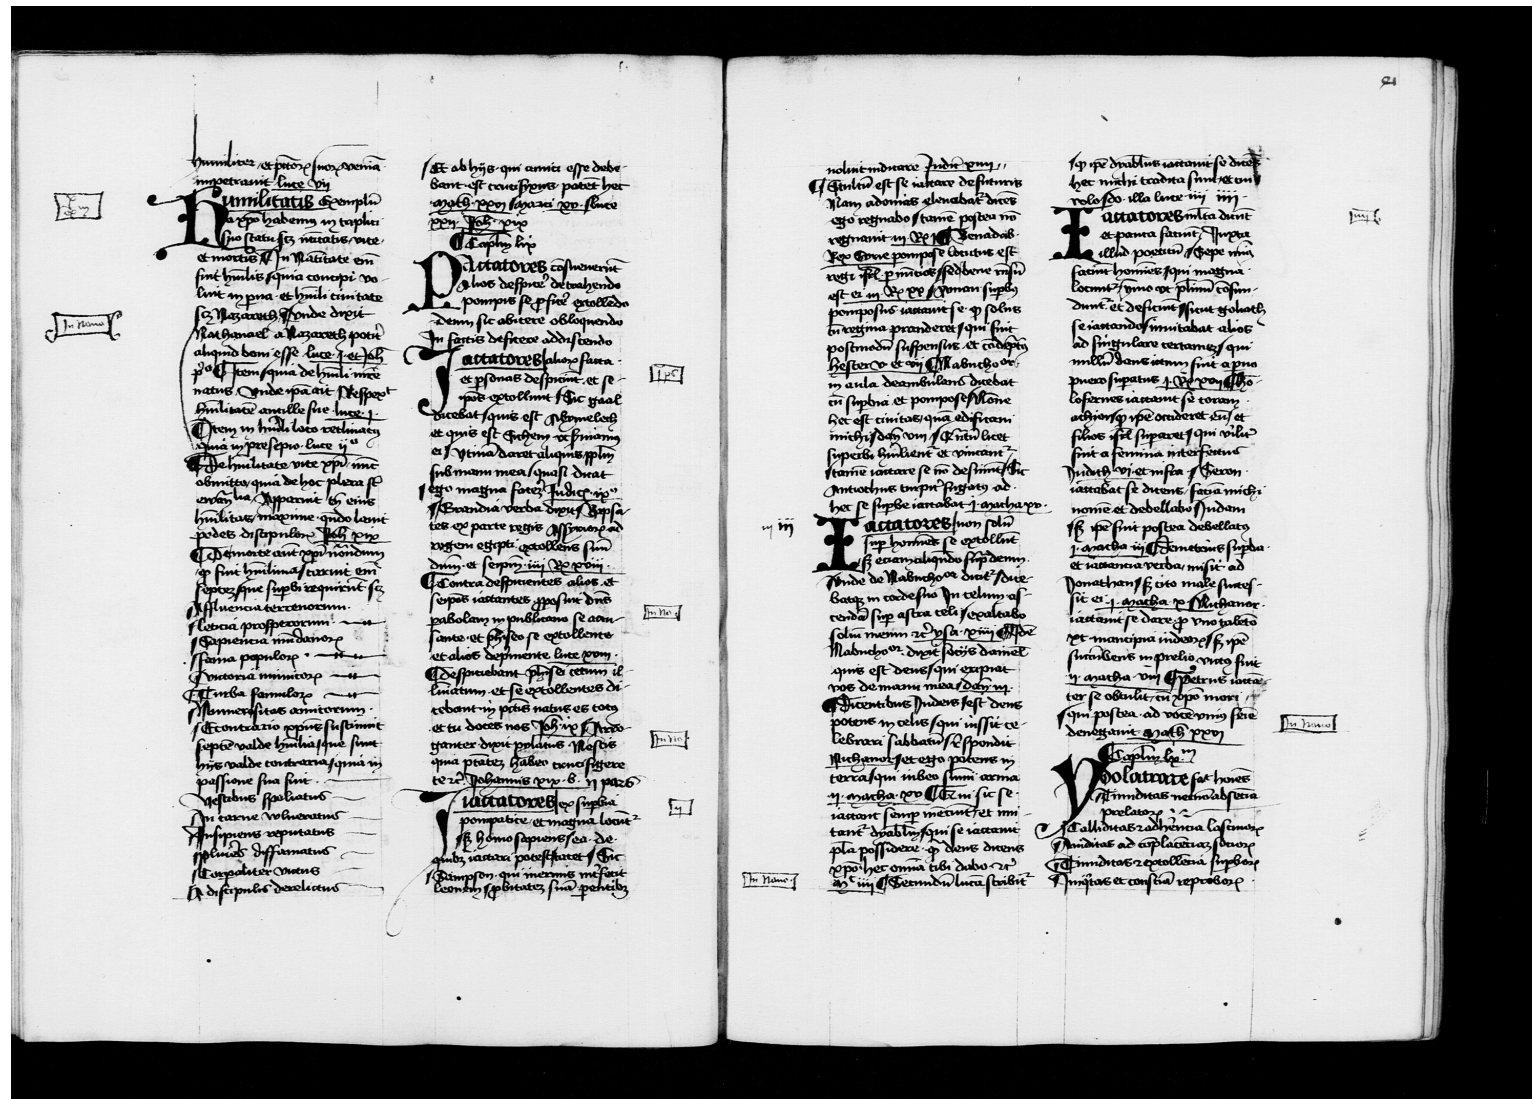 humiliter et pctorꝫ suorꝫ veniā
impetravit luce vii
Humilitatis Exemplū
a xpo habemus in triplici
suo statu scꝫ nātitatis vite
et mortis In Natitate em̄
fuit hūilis quia concipi vo-
luit in parua et hūili ciuitate
scꝫ Nazareth Unde dixit
Nathanael a Nazareth potʳ
aliquid boni esse luce j et Joh
pº Item quia de hūili mr̄e
natus Unde ipā ait Respexᵗ
hūilitatē ancille sue luce j
Item in hūili loco reclinatꝰ
quia in presepio luce iiº
De hūilitate vite xpi nūc
obmitto quia de hoc plera st̄
ewangīlia Apparuit tn̄ eius
hūilitas maxime qn̄do lauit
pedes discipulorꝫ Joh xix
De morte aūt xpi
qꝫ fuit hūilima caruit em̄
septeꝫ que supbi requirunt scꝫ
Affluencia terrenorum
leticia prosperorum
Sapiencia mūdanorꝫ
fama populorꝫ
victoria inimicorꝫ
Turba famulorꝫ
Numerositas amicorum
Econtrario xpus sustinuit
septē valde hūilia que sunt
hijs valde contraria quia in
passione sua fuit
vestibus spoliatus
In carne vulneratus
Insipiens reputatus
pluries diffamatus
Corporaliter victus
A discipulis derelictus
Et ab hijs qui amici esse debe-
bant est crucifixus patet hec
Math xxvj Marci xv Luce
xxii Joh xix
Caplm lix
Jactatores cōsueuerūt
Alios despicere detrahendo
pompis se pferre extollēdo
demū sic abicere obloquendo
In factis deficere addiscendo
Jactatores aliorꝫ facta
et psonas despiciūt et se
ipos extollunt Sic gaal
dicebat quis est Abymelech
et quis est Sichem vt huiamꝰ
ei Utina daret aliquis pplm
sub manu mea quasi dicat
ego magna facereꝫ Judicꝫ ixº
Grandia verba dixit Rapsa-
tes ex parte regis Assyriorꝫ ad
regem egipti extollens suū
dnm et seipm iiij Rꝫ xviii
Contra despicientes alios et
seipos iactantes pposuit dns
pabolam in publicano se accu-
sante et phiseo se extollente
et alios depmente luce xviii
despiciebant phisei cecum il-
luīatum et se extollentes di-
cebant in pctis natus es totꝰ
et tu doces nos Joh ix Arro-
ganter dixit pylatus Nescis
quia ptateꝫ habeo crucifigere
te et Johannis xix b ij pars
Jactatores ex supbia
pompatice et magna locūtʳ
sꝫ homo sapiens ea de
quibꝫ iactari potest tacet Sic
Sampson qui inermis interfecit
leonem pbitateꝫ suā parentibꝫ
noluit indicare Judicꝫ xiiij
Stultū est se iactare de futuris
Nam adonias eleuabatʳ dicēs
ego regnabo tamē postea nō
regnauit iii Rꝫ j Benadab
Rex Syrie pompose locutus est
regi isrl p nūcios sed bene resū
est ei iii Rꝫ xx Aman supbꝰ
pomposus iactauit se qꝫ solus
cū regina pranderet qui fuit
postmodū suspensus et cōdēptꝰ
hester v et vii Nabuchoᵒʳ
in aula deambulans dicebat
cū supbia et pompose None
hec est ciuitas quā edificaui
michi dan iiii Et tū licet
superbi hūilient et vincantʳ
tamē iactare se nō desinūt Sic
Antiochus turpiter fugatꝰ ad
hec se supbe iactabat j macha xv
Jactatores non solū
sup hoīnes se extollūt
sꝫ eciam aliquando supra deum
Unde de Nabuchoᵒʳ dicitʳ dice-
bat eꝫ in corde suo In celum as-
cendā sup astra celi exaltabo
soliū meum et ysa xiiij Idē
Nabuchoᵒʳ dixit socijs daniel
quis est deus qui eripiat
vos de manu mea dan iii
Dicentibus Judeis est deus
potens in celis qui iussit ce-
lebrari sabbatū Respondit
Nichanor et ego potens in
terra qui iubeo sumi arma
ij macha xv Et in sic se
iactant semp metiunt et imi-
tantʳ dyabolū qui se iactauit
pla possidere qꝫ deus dicens
xpo hec omnia tibi dabo et
Mᵗ iiij Secundū lucā scribitʳ
qꝫ ipe dyabolus iactauit se dicēs
hec michi tradita sunt et cui
volo do illa luce iiij
Jactatores mlta dicūt
et pauca faciūt Juxta
illud poeticū Sepe mīa
faciūt homīes qui magna
locuntʳ ymo vt plimū cōfun-
duntʳ et deficiūt sicut goliath
se iactando inuitabat alios
ad singulare certameꝫ qui
nullū dans ictum fuit a puo
puero supatus j Rꝫ xvij Olo-
lofernes iactauit se coram
achior qꝫ ipe occideret eū et
filios isrl superaret qui vilitʳ
fuit a femina interfectus
Judith vi et infra Seron
iactabat se dicens faciā michi
nomē et debellabo Judam
sꝫ ipe fuit postea debellatꝰ
j macha iij Demetrius supba
et iactancia verba misit ad
Jonathan sꝫ cito male succes-
sit ei j macha x Nichanor
iactauit se dare pro vno taleto
xc mancipia iudeorꝫ sꝫ ipe
succūbens in prelio victꝰ fuit
ij macha viij Petrus iacta-
ter se obtulit cū xpo mori
qui postea ad vocē vniꝰ femīe
denegauit Math xxvj
Caplm lxᵐ
Ydolatrare fac hoīes
Timiditas
prelatorꝫ
Calliditas et adhrencia lasciuorꝫ
Auiditas ad cōplacenciaꝫ sociorꝫ
Timiditas et excellēcia supborꝫ
Iniqtas et consciencia reproborꝫ